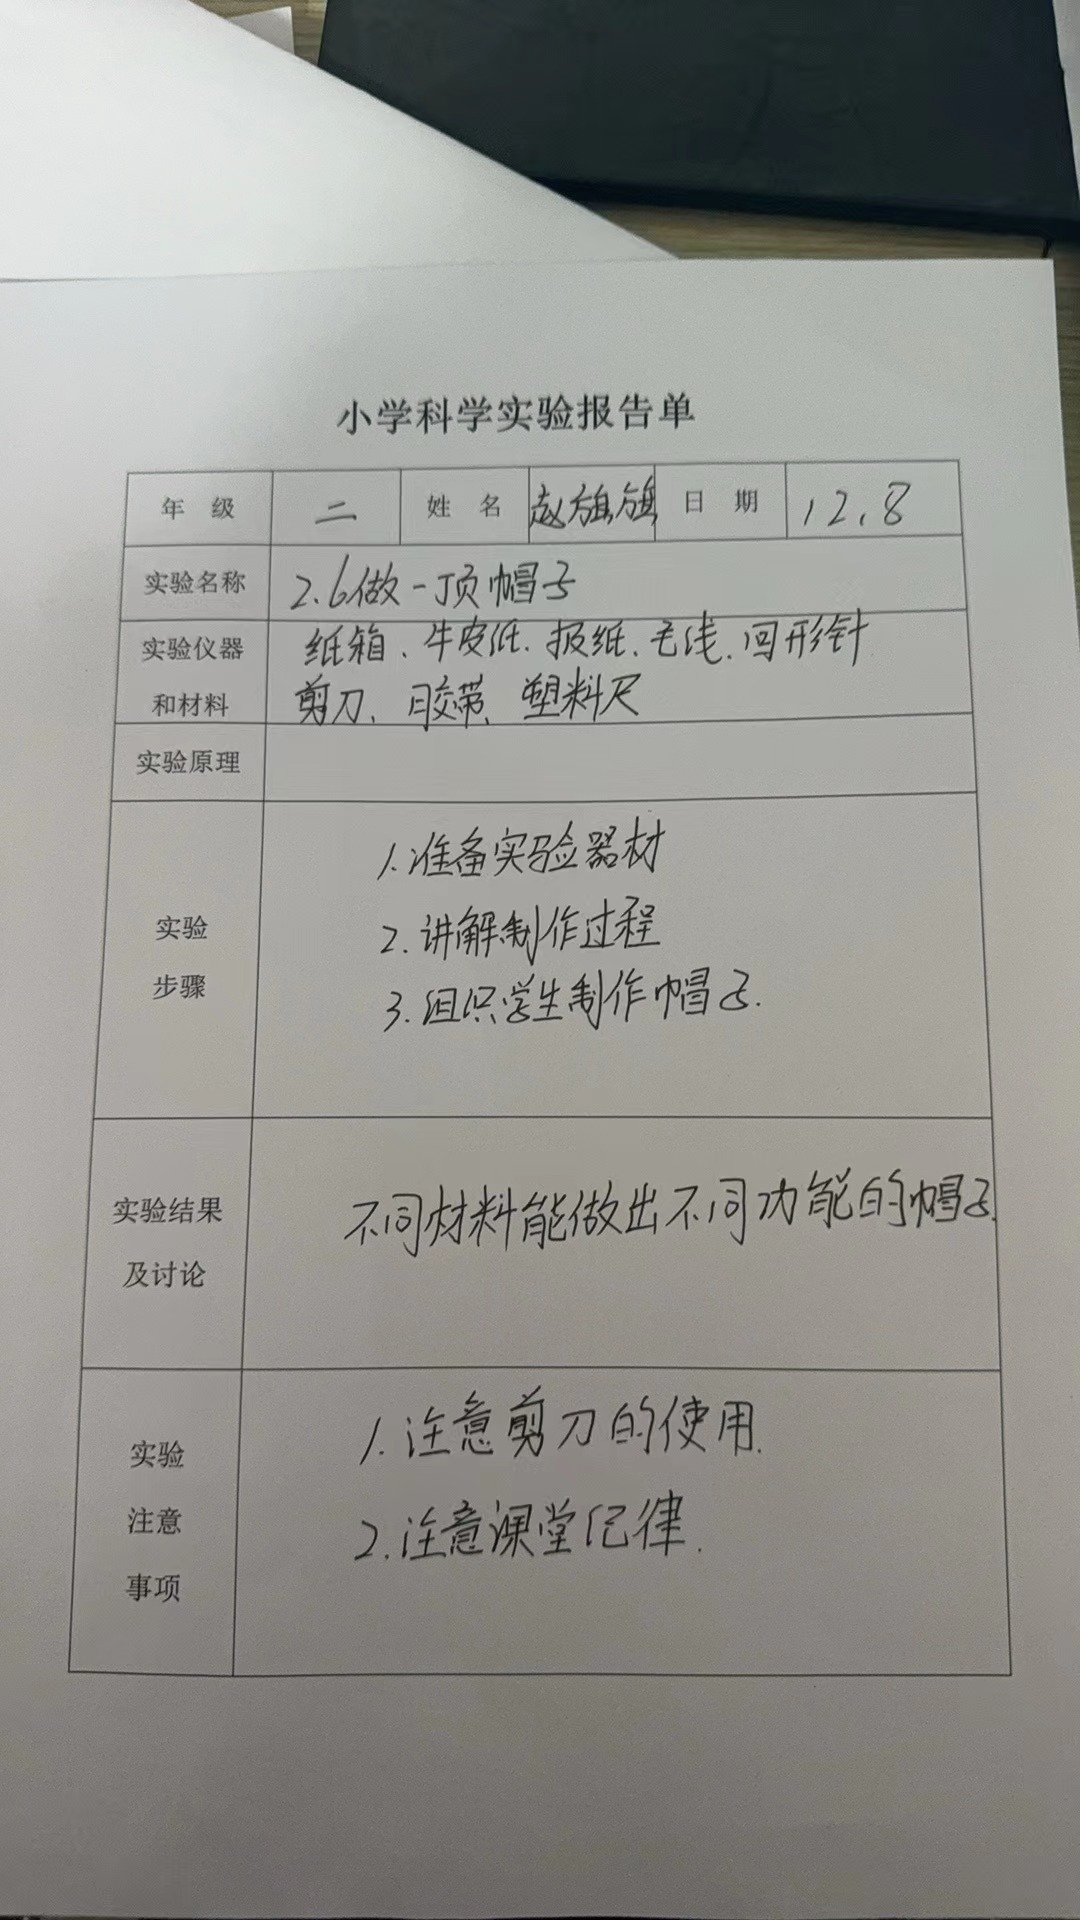 小学科学实验报告单
年 级 二 姓 名 赵旗旗 日 期 12.8
实验名称 2.6做一顶帽子
实验仪器 纸箱、牛皮纸、报纸、毛线、回形针
和材料 剪刀、胶带、塑料尺
实验原理
1.准备实验器材
实验 2.讲解制作过程
步骤 3.组织学生制作帽子.
实验结果 不同材料能做出不同功能的帽子.
及讨论
1.注意剪刀的使用.
实验
注意 2.注意课堂纪律.
事项